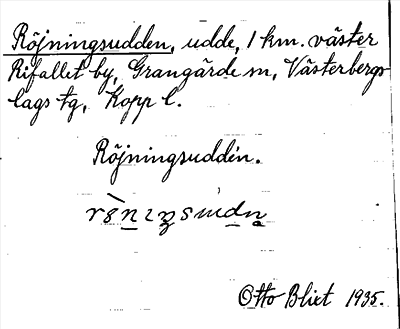 Röjningsudden, udde, 1 km. väster
Rifallet by, Grangärde sn, Västerbergs
lags tg, Kopp l.
Röjningsuddén.
Otto Blixt 1935.